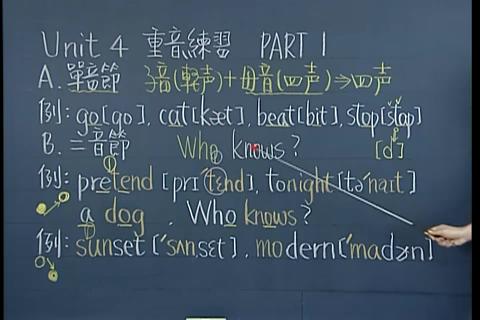 Unit 4 重音練習 PART 1
A. 單音節 子音(輕声)+母音(四声)⇒四声
例: go[go], cat[kæt], beat[bit], stop[stap]
B. 二音節 Who knows? [d]
例: pretend [prɪ'tɛnd], tonight[tə'naɪt]
a dog , Who knows?
例: sunset ['sʌn,sɛt], modern['madɚn]